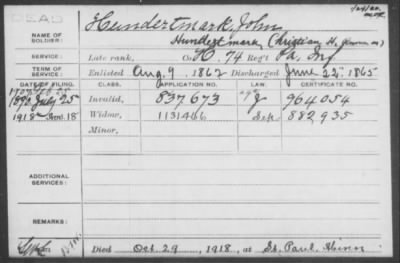 DEAD
NAME OF SOLDIER: Hundertmark, John
Hundert mark, Christian H.
Late rank, Co. H. 74 Reg't Pa. Inf
TERM OF SERVICE: Enlisted Aug. 9, 1862 Discharged June 22", 1865
DATE OF FILING. CLASS. APPLICATION NO. LAW. CERTIFICATE NO.
1892 July 25 Invalid, 837673 "9" J 964054
1918 Nov. 18 Widow, 1131466 Sep 882,935
Minor,
ADDITIONAL SERVICES:
REMARKS:
Died Oct. 29, 1918, at St. Paul, Minn